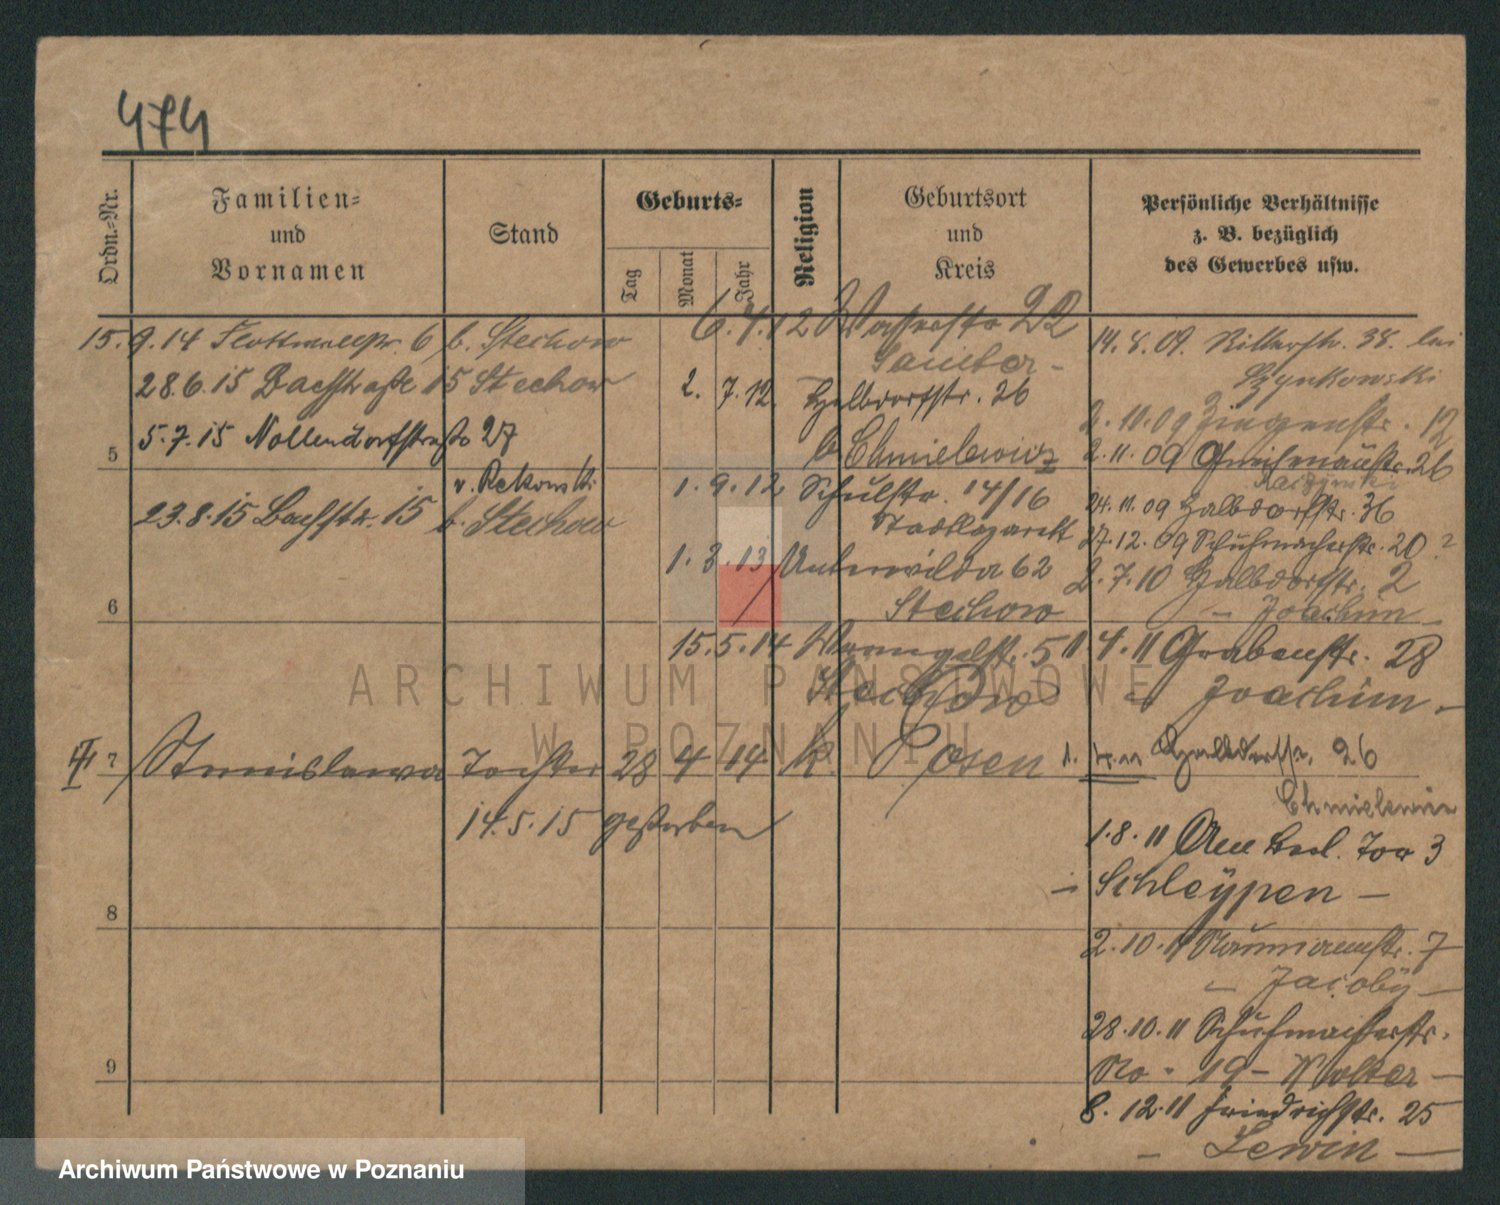 474
Ordn.-Nr.
Familien-
und
Vornamen
Stand
Geburts-
Tag
Monat
Jahr
Religion
Geburtsort
und
Kreis
Persönliche Verhältnisse
z. B. bezüglich
des Gewerbes usw.
15.9.14 6 b. Stechow
28.6.15 Bachstraße 15 Stechow
5.7.15 Nollendorfstraße 27
v. Rekowski
23.8.15 Bachstr. 15 b. Stechow
5
6
II 7 Stanislawa Tochter 28 4 14 k. Posen
14.5.15 gestorben
8
9
6.4.12 22
2.7.12 Halbdorfstr. 26
b. Chmielewicz
1.9.12 Schulstr. 14/16
Stadtlazarett
1.3.13 Unterwilda 62
Stechow
15.5.14 Wrangelstr. 5
Stechow
14.8.09. Ritterstr. 38. bei
Szynkowski
2.11.09 Ziegenstr. 12
2.11.09 26
24.11.09 Halbdorfstr. 36
27.12.09 Schuhmacherstr. 20 ?
2.7.10 Halbdorfstr. 2
- Joachim -
1 4.11 Grabenstr. 28
- Joachim -
1. Halbdorfstr. 26
Chmielewicz
1.8.11 Am Berl. Tor 3
- Schleypen -
2.10.11 Naumannstr. 7
- Jacoby -
28.10.11 Schuhmacherstr.
No. 19 - Wolter -
8.12.11 Friedrichstr. 25
- Lewin -
ARCHIWUM PAŃSTWOWE
W POZNANIU
Archiwum Państwowe w Poznaniu